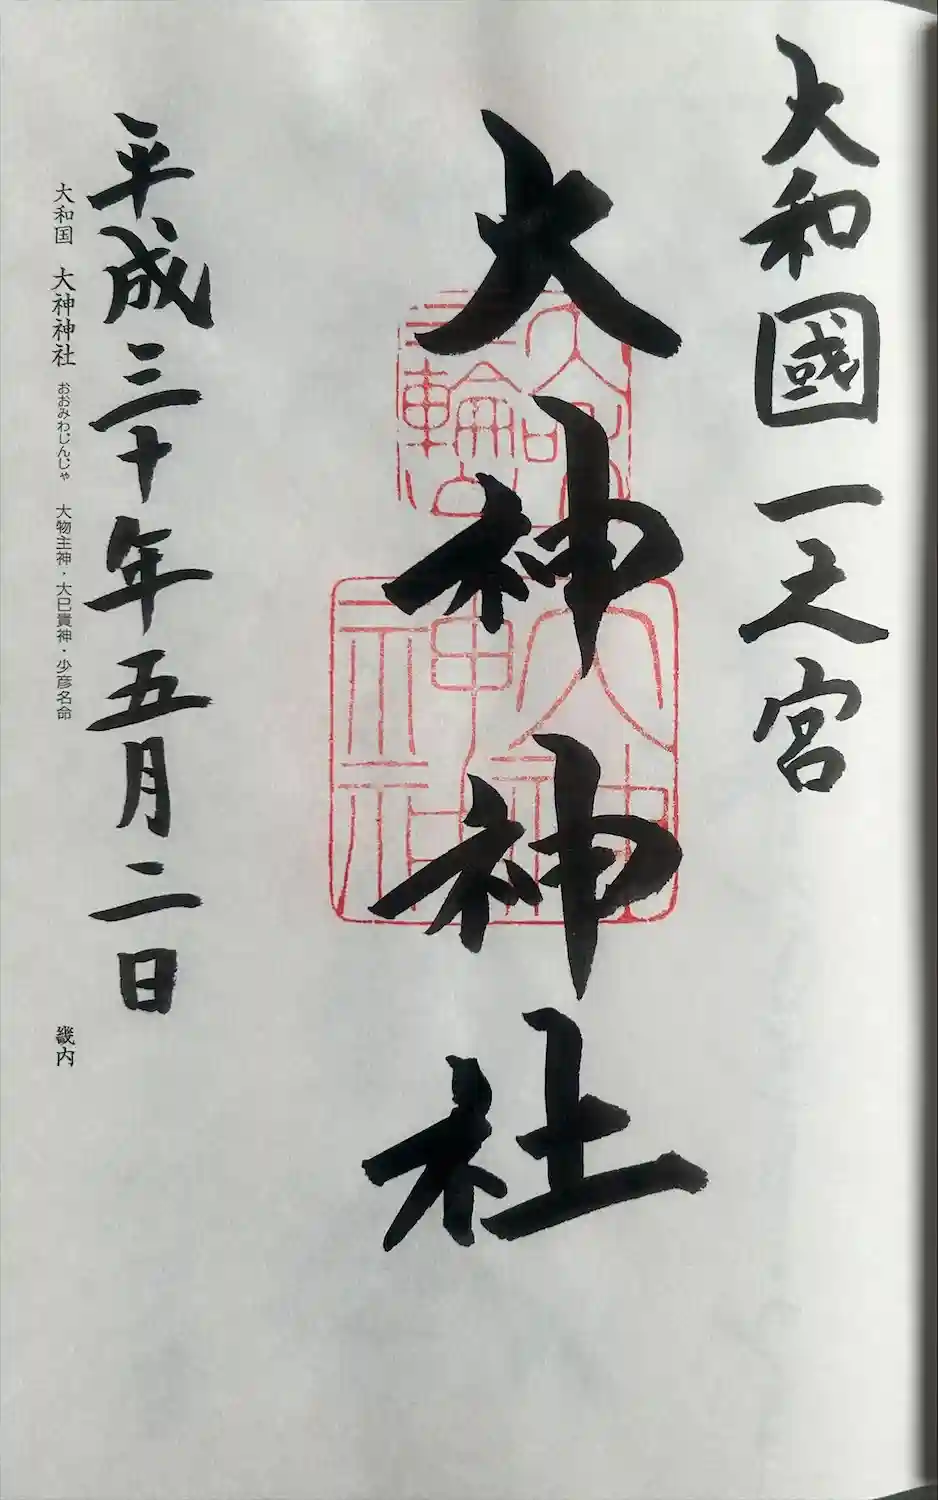 大和國一之宮
大神神社
大神
神社
平成三十年五月二日
大和国 大神神社 おおみわじんじゃ 大物主神・大巳貴神・少彦名命 畿内